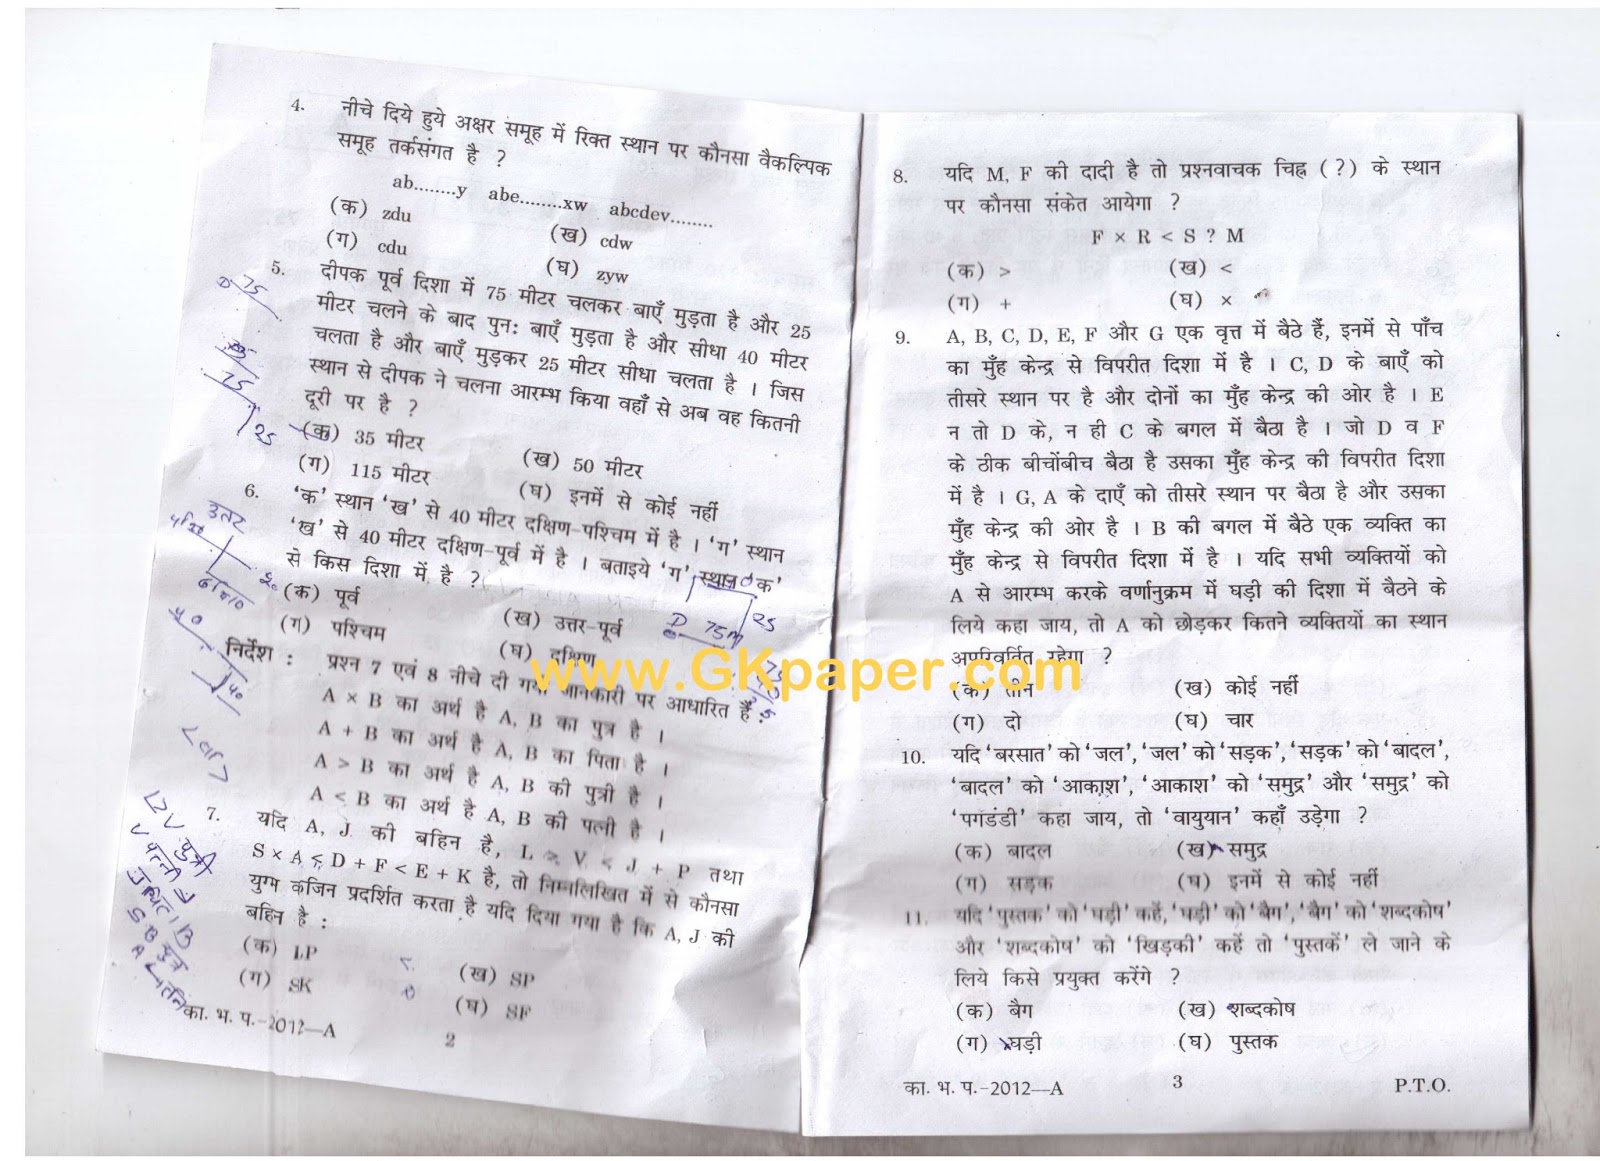 4. नीचे दिये हुये अक्षर समूह में रिक्त स्थान पर कौनसा वैकल्पिक
समूह तर्कसंगत है ?
ab........y abe........xw abcdev........
(क) zdu
(ख) cdw
(ग) cdu
(घ) zyw
5. दीपक पूर्व दिशा में 75 मीटर चलकर बाएँ मुड़ता है और 25
मीटर चलने के बाद पुन: बाएँ मुड़ता है और सीधा 40 मीटर
चलता है और बाएँ मुड़कर 25 मीटर सीधा चलता है । जिस
स्थान से दीपक ने चलना आरम्भ किया वहाँ से अब वह कितनी
दूरी पर है ?
(क) 35 मीटर
(ख) 50 मीटर
(ग) 115 मीटर
(घ) इनमें से कोई नहीं
6. ‘क’ स्थान ‘ख’ से 40 मीटर दक्षिण-पश्चिम में है । ‘ग’ स्थान
‘ख’ से 40 मीटर दक्षिण-पूर्व में है । बताइये ‘ग’ स्थान ‘क’
से किस दिशा में है ?
(क) पूर्व
(ख) उत्तर-पूर्व
(ग) पश्चिम
(घ) दक्षिण
निर्देश : प्रश्न 7 एवं 8 नीचे दी गई जानकारी पर आधारित हैं :
A × B का अर्थ है A, B का पुत्र है ।
A + B का अर्थ है A, B का पिता है ।
A > B का अर्थ है A, B की पुत्री है ।
A < B का अर्थ है A, B की पत्नी है ।
7. यदि A, J की बहिन है, L > V < J + P तथा
S × A < D + F < E + K है, तो निम्नलिखित में से कौनसा
युग्म कजिन प्रदर्शित करता है यदि दिया गया है कि A, J की
बहिन है :
(क) LP
(ख) SP
(ग) SK
(घ) SF
का. भ. प.-2012—A
2
8. यदि M, F की दादी है तो प्रश्नवाचक चिह्न (?) के स्थान
पर कौनसा संकेत आयेगा ?
F × R < S ? M
(क) >
(ख) <
(ग) +
(घ) ×
9. A, B, C, D, E, F और G एक वृत्त में बैठे हैं, इनमें से पाँच
का मुँह केन्द्र से विपरीत दिशा में है । C, D के बाएँ को
तीसरे स्थान पर है और दोनों का मुँह केन्द्र की ओर है । E
न तो D के, न ही C के बगल में बैठा है । जो D व F
के ठीक बीचोंबीच बैठा है उसका मुँह केन्द्र की विपरीत दिशा
में है । G, A के दाएँ को तीसरे स्थान पर बैठा है और उसका
मुँह केन्द्र की ओर है । B की बगल में बैठे एक व्यक्ति का
मुँह केन्द्र से विपरीत दिशा में है । यदि सभी व्यक्तियों को
A से आरम्भ करके वर्णानुक्रम में घड़ी की दिशा में बैठने के
लिये कहा जाय, तो A को छोड़कर कितने व्यक्तियों का स्थान
अपरिवर्तित रहेगा ?
(क) तीन
(ख) कोई नहीं
(ग) दो
(घ) चार
10. यदि ‘बरसात’ को ‘जल’, ‘जल’ को ‘सड़क’, ‘सड़क’ को ‘बादल’,
‘बादल’ को ‘आकाश’, ‘आकाश’ को ‘समुद्र’ और ‘समुद्र’ को
‘पगडंडी’ कहा जाय, तो ‘वायुयान’ कहाँ उड़ेगा ?
(क) बादल
(ख) समुद्र
(ग) सड़क
(घ) इनमें से कोई नहीं
11. यदि ‘पुस्तक’ को ‘घड़ी’ कहें, ‘घड़ी’ को ‘बैग’, ‘बैग’ को ‘शब्दकोष’
और ‘शब्दकोष’ को ‘खिड़की’ कहें तो ‘पुस्तकें’ ले जाने के
लिये किसे प्रयुक्त करेंगे ?
(क) बैग
(ख) शब्दकोष
(ग) घड़ी
(घ) पुस्तक
का. भ. प.-2012—A
3
P.T.O.
www.GKpaper.com
D 75
75
25
उत्तर
40
40
D 75M
25